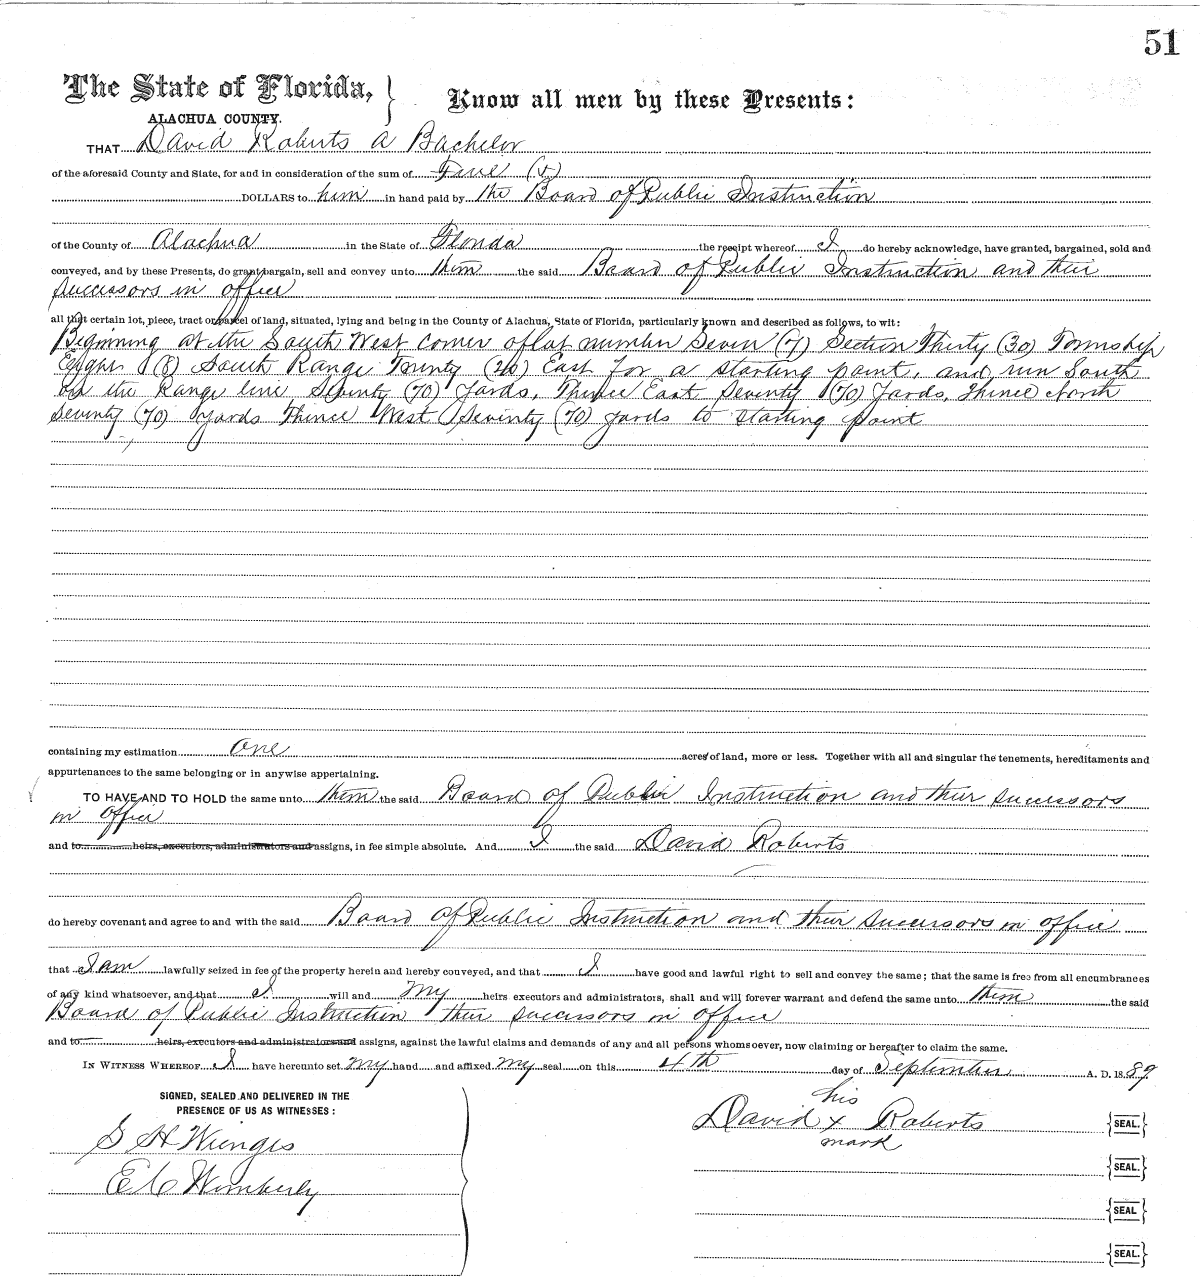 51
The State of Florida, } Know all men by these Presents:
ALACHUA COUNTY.
THAT David Roberts a Bachelor
of the aforesaid County and State, for and in consideration of the sum of Five (5)
DOLLARS to him in hand paid by the Board of Public Instruction
of the County of Alachua in the State of Florida the receipt whereof I do hereby acknowledge, have granted, bargained, sold and
conveyed, and by these Presents, do grant, bargain, sell and convey unto them the said Board of Public Instruction and their
successors in office
all that certain lot, piece, tract or parcel of land, situated, lying and being in the County of Alachua, State of Florida, particularly known and described as follows, to wit:
Beginning at the South West corner of lot number Seven (7) Section Thirty (30) Township
Eight (8) South Range Twenty (20) East for a starting point, and run South
on the Range line Seventy (70) yards, Thence East Seventy (70) Yards, Thence North
Seventy (70) yards Thence West Seventy (70) yards to starting point
containing my estimation One acres of land, more or less. Together with all and singular the tenements, hereditaments and
appurtenances to the same belonging or in anywise appertaining.
TO HAVE AND TO HOLD the same unto them the said Board of Public Instruction and their successors
in office
and to heirs, executors, administrators and assigns, in fee simple absolute. And I the said David Roberts
do hereby covenant and agree to and with the said Board of Public Instruction and their successors in office
that I am lawfully seized in fee of the property herein and hereby conveyed, and that I have good and lawful right to sell and convey the same; that the same is free from all encumbrances
of any kind whatsoever, and that I will and my heirs executors and administrators, shall and will forever warrant and defend the same unto them the said
Board of Public Instruction their successors in office
and to heirs, executors and administrators and assigns, against the lawful claims and demands of any and all persons whomsoever, now claiming or hereafter to claim the same.
IN WITNESS WHEREOF I have hereunto set my hand and affixed my seal on this 4th day of September A. D. 1889
SIGNED, SEALED AND DELIVERED IN THE
PRESENCE OF US AS WITNESSES:
his
David x Roberts {SEAL.}
mark
S H Wienges
E C Wimberly
{SEAL.}
{SEAL}
{SEAL.}